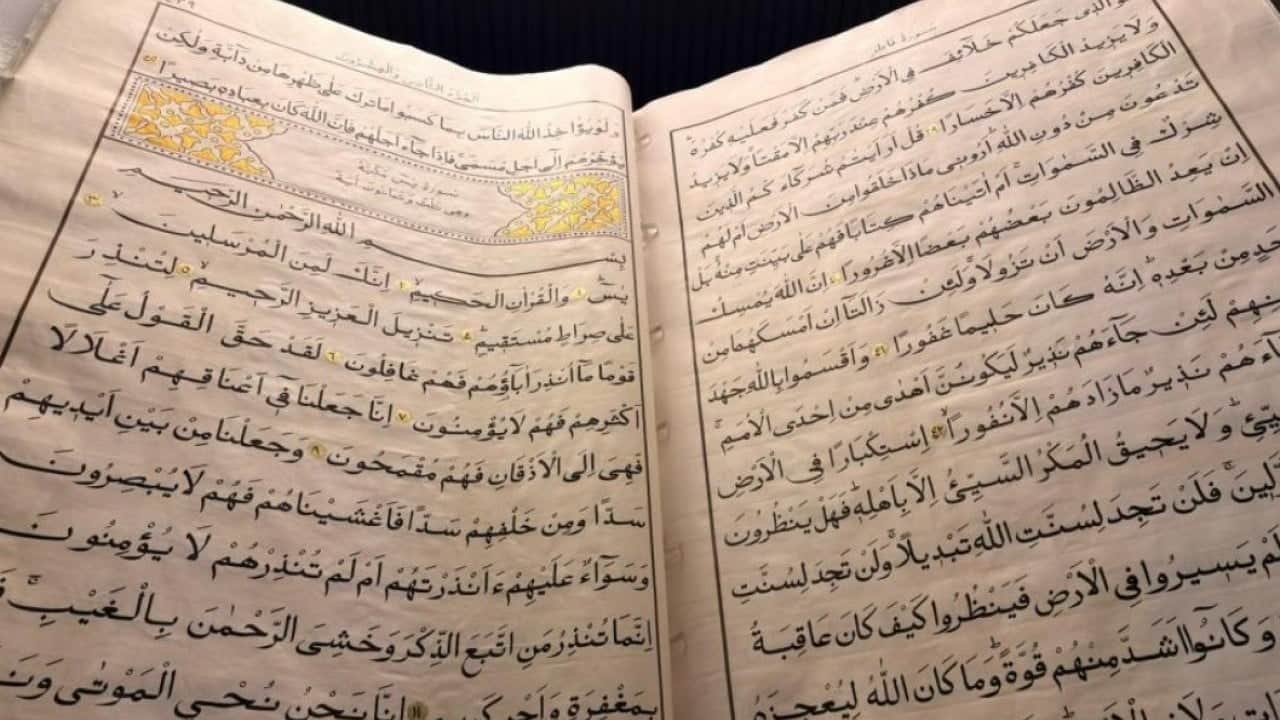 سورة فاطر
الَّذِى جَعَلَكُمْ خَلَائِفَ فِى الْاَرْضِ فَمَنْ كَفَرَ فَعَلَيْهِ كُفْرُهُ
وَلَا يَزِيدُ الْكَافِرِينَ كُفْرُهُمْ عِنْدَ رَبِّهِمْ اِلَّا مَقْتًا وَلَا يَزِيدُ
الْكَافِرِينَ كُفْرُهُمْ اِلَّا خَسَارًا ٣٩ قُلْ اَرَاَيْتُمْ شُرَكَاءَكُمُ الَّذِينَ
تَدْعُونَ مِنْ دُونِ اللّٰهِ اَرُونِى مَاذَا خَلَقُوا مِنَ الْاَرْضِ اَمْ لَهُمْ
شِرْكٌ فِى السَّمٰوَاتِ اَمْ اٰتَيْنَاهُمْ كِتَابًا فَهُمْ عَلٰى بَيِّنَتٍ مِنْهُ بَلْ
اِنْ يَعِدُ الظَّالِمُونَ بَعْضُهُمْ بَعْضًا اِلَّا غُرُورًا ٤٠ اِنَّ اللّٰهَ يُمْسِكُ
السَّمٰوَاتِ وَالْاَرْضَ اَنْ تَزُولَا وَلَئِنْ زَالَتَا اِنْ اَمْسَكَهُمَا مِنْ
مِنْ بَعْدِهِ اِنَّهُ كَانَ حَلِيمًا غَفُورًا ٤١ وَاَقْسَمُوا بِاللّٰهِ جَهْدَ
لَئِنْ جَاءَهُمْ نَذِيرٌ لَيَكُونُنَّ اَهْدٰى مِنْ اِحْدَى الْاُمَمِ
نَذِيرٌ مَا زَادَهُمْ اِلَّا نُفُورًا ٤٢ اِسْتِكْبَارًا فِى الْاَرْضِ
وَلَا يَحِيقُ الْمَكْرُ السَّيِّئُ اِلَّا بِاَهْلِهِ فَهَلْ يَنْظُرُونَ
فَلَنْ تَجِدَ لِسُنَّتِ اللّٰهِ تَبْدِيلًا وَلَنْ تَجِدَ لِسُنَّتِ
يَسِيرُوا فِى الْاَرْضِ فَيَنْظُرُوا كَيْفَ كَانَ عَاقِبَةُ
وَكَانُوا اَشَدَّ مِنْهُمْ قُوَّةً وَمَا كَانَ اللّٰهُ لِيُعْجِزَهُ
الجزء الثانى والعشرون
وَلَوْ يُؤَاخِذُ اللّٰهُ النَّاسَ بِمَا كَسَبُوا مَا تَرَكَ عَلٰى ظَهْرِهَا مِنْ دَابَّةٍ وَلٰكِنْ
يُؤَخِّرُهُمْ اِلٰى اَجَلٍ مُسَمًّى فَاِذَا جَاءَ اَجَلُهُمْ فَاِنَّ اللّٰهَ كَانَ بِعِبَادِهِ بَصِيرًا
سورة يس مكية
وهى ثلث وثمانون آية
بِسْمِ اللّٰهِ الرَّحْمٰنِ الرَّحِيمِ
يٰسٓ ١ وَالْقُرْاٰنِ الْحَكِيمِ ٢ اِنَّكَ لَمِنَ الْمُرْسَلِينَ ٣
عَلٰى صِرَاطٍ مُسْتَقِيمٍ ٤ تَنْزِيلَ الْعَزِيزِ الرَّحِيمِ ٥ لِتُنْذِرَ
قَوْمًا مَا اُنْذِرَ اٰبَاؤُهُمْ فَهُمْ غَافِلُونَ ٦ لَقَدْ حَقَّ الْقَوْلُ عَلٰى
اَكْثَرِهِمْ فَهُمْ لَا يُؤْمِنُونَ ٧ اِنَّا جَعَلْنَا فِى اَعْنَاقِهِمْ اَغْلَالًا
فَهِىَ اِلَى الْاَذْقَانِ فَهُمْ مُقْمَحُونَ ٨ وَجَعَلْنَا مِنْ بَيْنِ اَيْدِيهِمْ
سَدًّا وَمِنْ خَلْفِهِمْ سَدًّا فَاَغْشَيْنَاهُمْ فَهُمْ لَا يُبْصِرُونَ
وَسَوَاءٌ عَلَيْهِمْ ءَاَنْذَرْتَهُمْ اَمْ لَمْ تُنْذِرْهُمْ لَا يُؤْمِنُونَ
اِنَّمَا تُنْذِرُ مَنِ اتَّبَعَ الذِّكْرَ وَخَشِىَ الرَّحْمٰنَ بِالْغَيْبِ
بِمَغْفِرَةٍ وَاَجْرٍ كَرِيمٍ ١١ اِنَّا نَحْنُ نُحْىِ الْمَوْتٰى